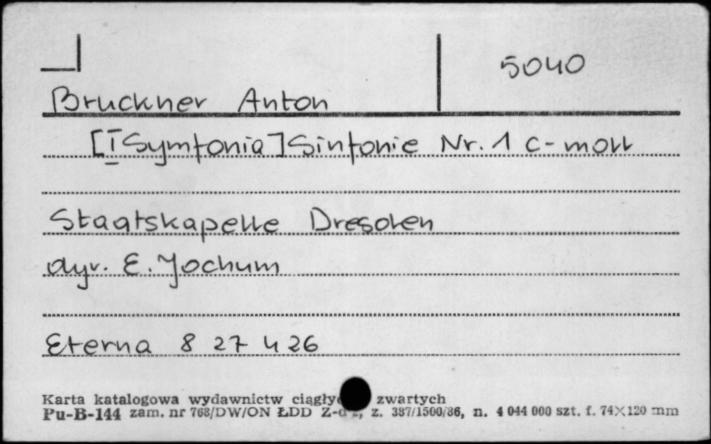 5040
Bruckner Anton
[I Symfonia] Sinfonie Nr. 1 c-moll
Staatskapelle Dresden
dyr. E. Jochum
Eterna 8 27 426
Karta katalogowa wydawnictw zwartych
Pu-B-144 zam. nr 768/DW/ON ŁDD z. 387/1500/86, n. 4 044 000 szt. f. 74×120 mm